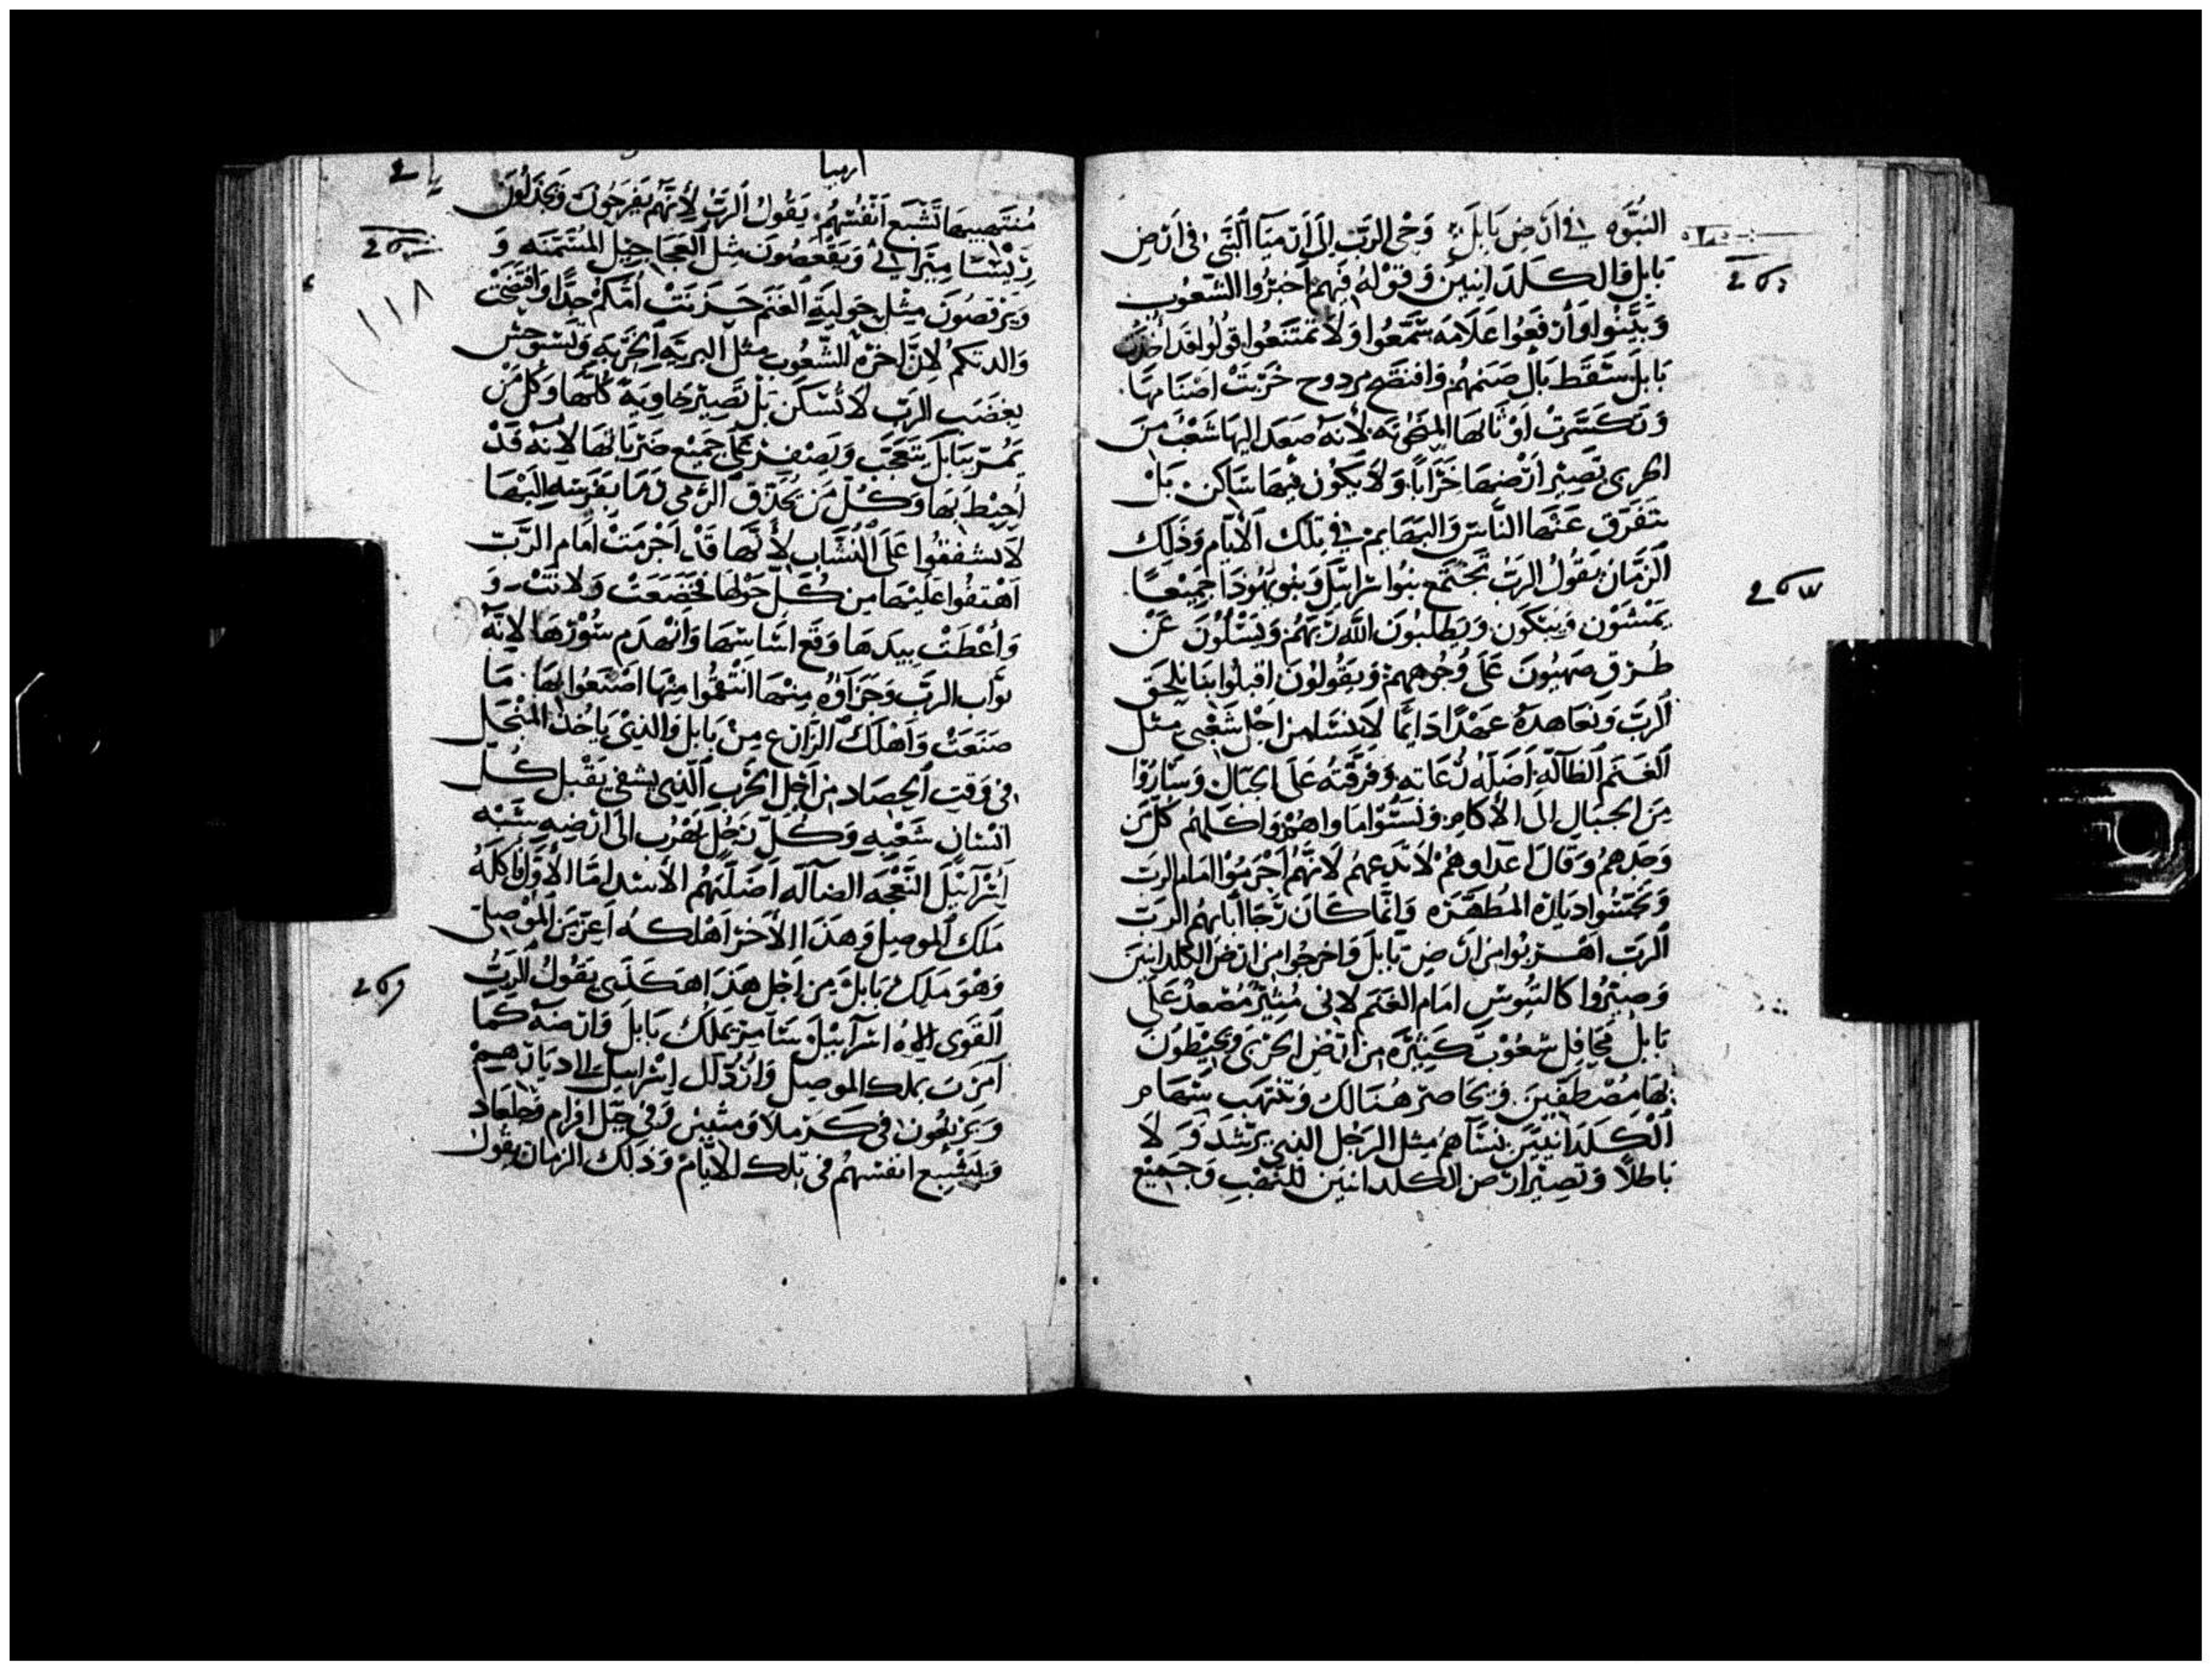 النبوه في ارض بابل وحي الرب الى ارميا النبي في ارض
بابل والكلدانيين وقوله فيهم اخبروا الشعوب
وبينوا وارفعوا علامه سمعوا ولا تمتنعوا قولوا قد اخذت
بابل سقط بال صنمهم وافتضح مردوح خزيت اصنامها
وتكسرت اوثانها لانه صعد اليها شعب من
الجربى تصير ارضها خرابا ولا يكون فيها ساكن بل
تتفرق عنها الناس والبهايم في تلك الايام وذلك
الزمان يقول الرب تجتمع بنوا اسرائيل وبنو يهودا جميعا
يمشون ويبكون ويطلبون الله ربهم ويسلون عن
طرق صهيون على وجوههم ويقولون اقبلوا بنا نلحق
الرب ونعاهده عهدا دايما لا ينسا من اجل شعبي مثل
الغنم الظآلة اضله رعاته وفرقته على الجبال وساروا
من الجبال الى الاكام ونسوا ماواهم واكلهم كل من
وجدهم وقال اعداوهم لا ندعهم لانهم اجرموا امام الرب
ديارة المطهره وانما كان رجا ابايهم الرب
الرب اهربوا من ارض بابل واخرجوا من ارض الكلدانيين
وصيروا كالتيوس امام الغنم لاني مثير مصعد على
بابل محافل شعوب كثيره من ارض الجربى ويحيطون
بها مصطفين ويحاصر هنالك وتنتهب سهام
الكلدانيين نسآهم مثل الرجل النبي يرشد ولا
باطلا وتصير ارض الكلدانيين للنهب وجميع
ارميا
منتهبيها تشبع انفسهم يقول الرب لانهم يفرحون ويجذلون
ميراثي ويقفصون مثل العجاجيل المسمنه و
ويرقصون مثل حولية الغنم حزنت امكم جدا وافتضحت
والدتكم لان اخره للشعوب مثل البرية الخربة وتستوحش
بغضب الرب لا تسكن بل تصير خاوية كلها وكل من
يمر ببابل يتعجب ويصفر على جميع ضرباتها لانه قد
احيط بها وكل من يحذق الرمي رما بقوسه اليها
لا تشفقوا على النشاب لانها قد اجرمت امام الرب
اهتفوا عليها من كل حولها فخضعت ولانت و
واعطت بيدها وقع اساسها وانهدم سورها لانه
ثواب الرب وجزاؤه منها انتقموا منها اصنعوا بها ما
صنعت واهلك الزارع من بابل والذي ياخذ المنجل
في وقت الحصاد من اجل الحرب الذي يشفي يقبل كل
انسان شعبه وكل رجل يهرب الى ارضه شبه
اسرائيل النعجه الضآله اضلتهم الاسد اما الاول فاكله
ملك الموصل وهذا الاخر اهلكه اعز من الموصلى
وهو ملك بابل من اجل هذا هكذى يقول الرب
القوى اله اسرآئيل سآمر بملك بابل وارضه كما
امرت بملك الموصل وارد ال اسرائيل الى ديارهم
ويرتعون في كرملا ومثنين وفي جبل افرام وجلعاد
وليشبع انفسهم في تلك الايام وذلك الزمان يقول
١١٨